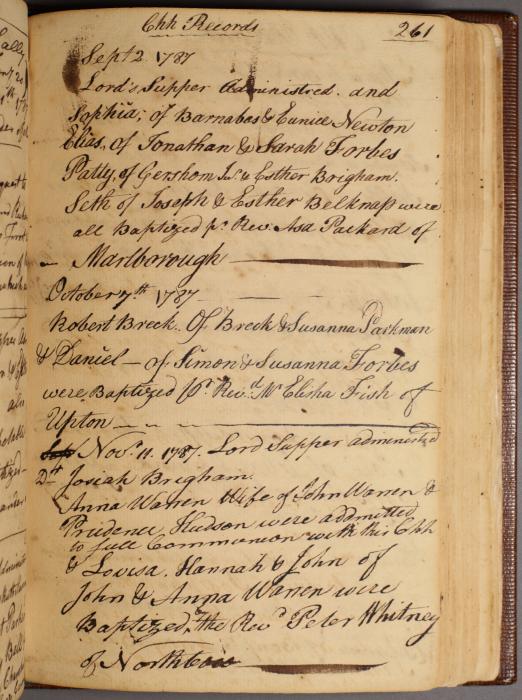 Chh Records 261
Sept 2 1787
Lord's Supper Administred. and
Sophia; of Barnabas & Eunice Newton
Elias, of Jonathan & Sarah Forbes
Patty, of Gershom Junr. & Esther Brigham.
Seth of Joseph & Esther Belknap were
all Baptized pr. Rev. Asa Packard of
Marlborough
October 7th 1787
Robert Breck. Of Breck & Susanna Parkman
& Daniel — of Simon & Susanna Forbes
were Baptized pr. Revd. Mr Elisha Fish of
Upton
Novr. 11. 1787. Lord Supper administed
Dtt Josiah Brigham.
Anna Warren Wife of John Warren &
Prudence Hudson were addmitted
to full Communion with this Chh
& Lovisa. Hannah & John of
John & Anna Warren were
Baptized, the Revd Peter Whitney
of Northboro